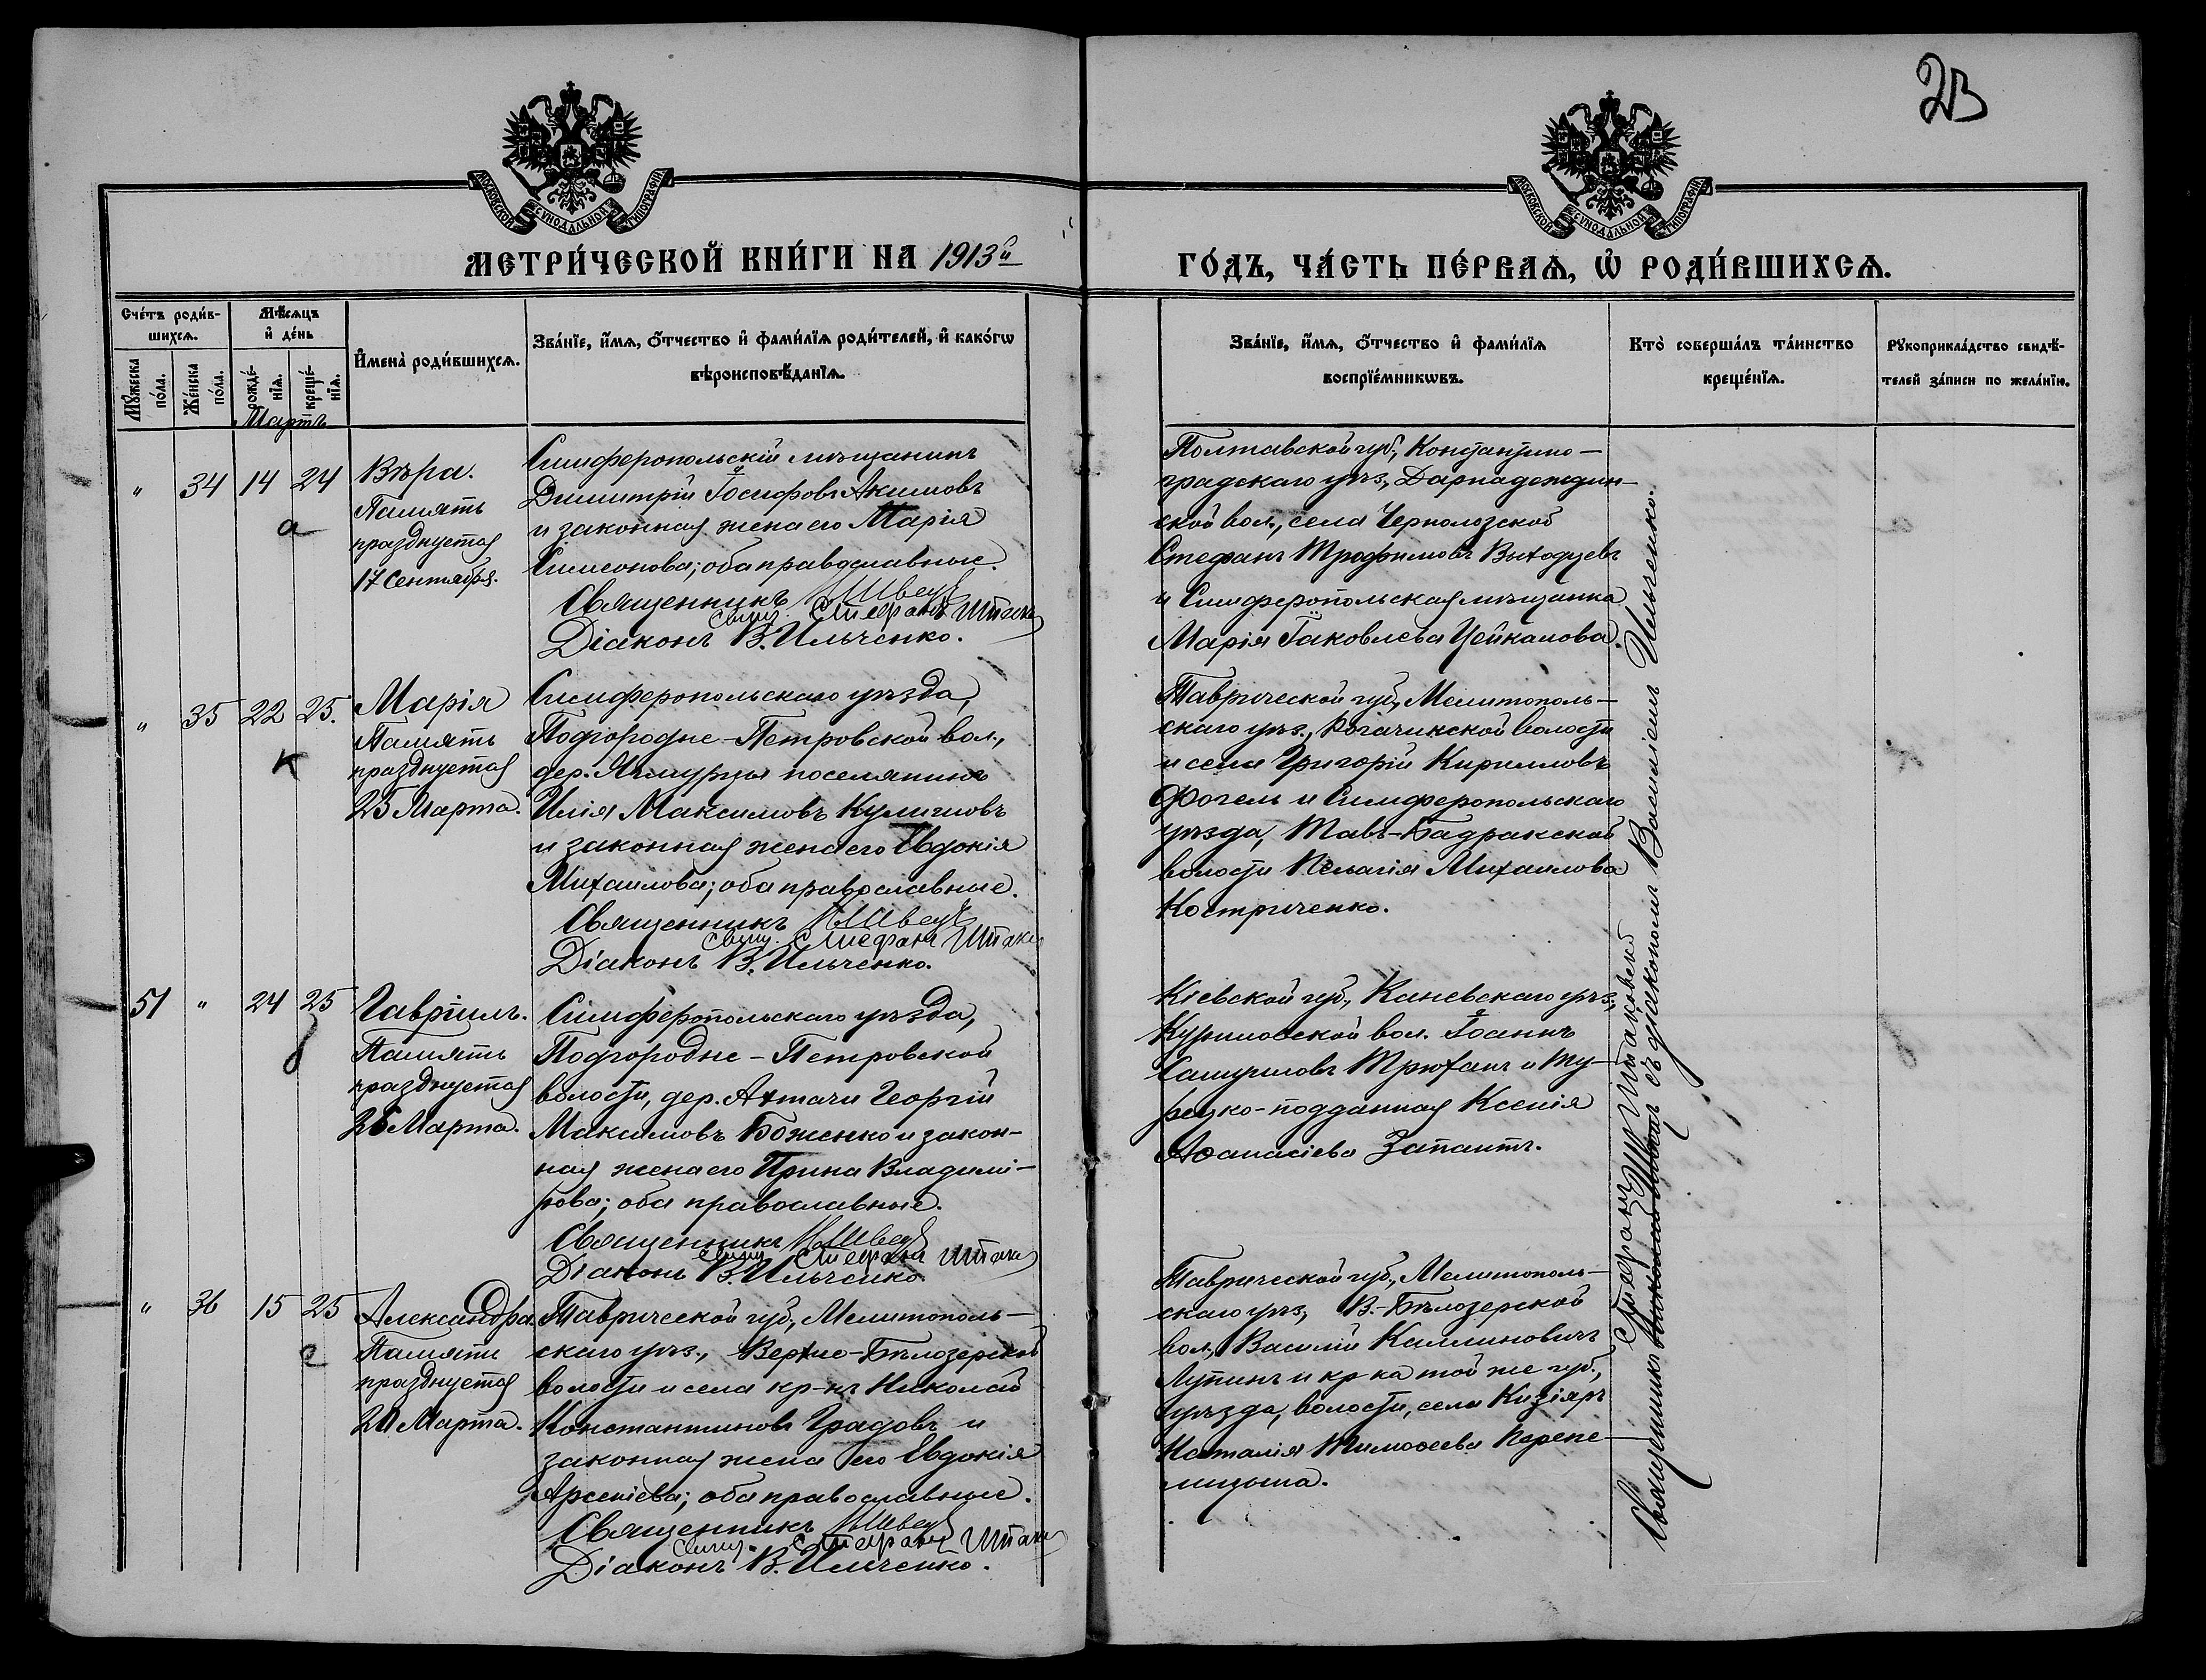 23
МОСКОВСКОЙ СѴНОДАЛЬНОЙ ТИПОГРАФІИ
МОСКОВСКОЙ СѴНОДАЛЬНОЙ ТИПОГРАФІИ
МЕТРИ́ЧЕСКОЙ КНИ́ГИ НА 1913й
ГО́ДЪ, ЧА́СТЬ ПЕ́РВАѦ, Ѽ РОДИ́ВШИХСѦ.
Сче́тъ роди́в-
шихсѧ.
Мꙋ́жеска
по́ла.
Же́нска
по́ла.
Мѣ́сѧцъ
и҆ де́нь
рожде́-
нїѧ.
креще́-
нїѧ.
И҆мена̀ роди́вшихсѧ.
Зва́нїе, и҆́мѧ, ѻ҆́тчество и҆ фами́лїѧ роди́телей, и҆ како́гѡ
вѣроисповѣ́данїѧ.
Зва́нїе, и҆́мѧ, ѻ҆́тчество и҆ фами́лїѧ
воспрїе́мникѡвъ.
Кто̀ соверша́лъ та́инство
креще́нїѧ.
Рꙋкоприкла́дство свидѣ́-
телей за́писи по жела́нїю.
Мартъ
" 34 14 24
а
Вѣра.
Память
празднуется
17 Сентября.
Симферопольскій мѣщанинъ
Димитрій Іосифовъ Акимовъ
и законная жена его Марія
Симеонова; оба православные.
Священникъ Н. Швецъ
Свящ. Стефанъ Штак
Діаконъ В. Ильченко.
Полтавской губ., Константино-
градскаго уѣз.,
ской вол., села
Стефанъ Трофимовъ Выходцевъ
и Симферопольская мѣщанка
Марія Іаковлева Цейкалова.
" 35 22 25.
к
Марія
Память
празднуется
25 Марта.
Симферопольскаго уѣзда,
Подгородне-Петровской вол.,
дер. поселянинъ
Илія Максимовъ
и законная жена его Евдокія
Михаилова; оба православные.
Священникъ Н. Швецъ
Свящ. Стефанъ Штак
Діаконъ В. Ильченко.
Таврической губ., Мелитополь-
скаго уѣз., Рогачикской волости
и села Григорій Кирилловъ
Фогель и Симферопольскаго
уѣзда, Тав-Бадракской
волости Пелагія Михаилова
Костриченко.
51 " 24 25
Гавріилъ.
Память
празднуется
26 Марта.
Симферопольскаго уѣзда,
Подгородне-Петровской
волости, дер. Ахтачи Георгій
Максимовъ Боженко и закон-
ная жена его Ирина Владимі-
рова; оба православные.
Священникъ Н. Швецъ
Свящ. Стефанъ Штак
Діаконъ В. Ильченко.
Кіевской губ., Каневскаго уѣз.,
Куриловской вол. Іоаннъ
Самуиловъ Трюханъ и Ту-
рецко-подданная Ксенія
Аѳанасіева
" 36 15 25
е
Александра.
Память
празднуется
20 Марта.
Таврической губ., Мелитополь-
скаго уѣз., Верхне-Бѣлозерской
волости и села кр-нъ Николай
Константиновъ Градовъ и
законная жена его Евдокія
Арсеніева; оба православные.
Священникъ Н. Швецъ
Свящ. Стефанъ Штак
Діаконъ В. Ильченко.
Таврической губ., Мелитополь-
скаго уѣз., В.-Бѣлозерской
вол., Василій Каллиновичъ
Лупинъ и кр-ка той же губ.,
уѣзда, волости, села Кизіяръ
Наталія Тимоѳеева Перепе-
лицына.
Стефанъ Штаковскій
Священникъ Николай Швецъ съ діакономъ Василіемъ Ильченко.